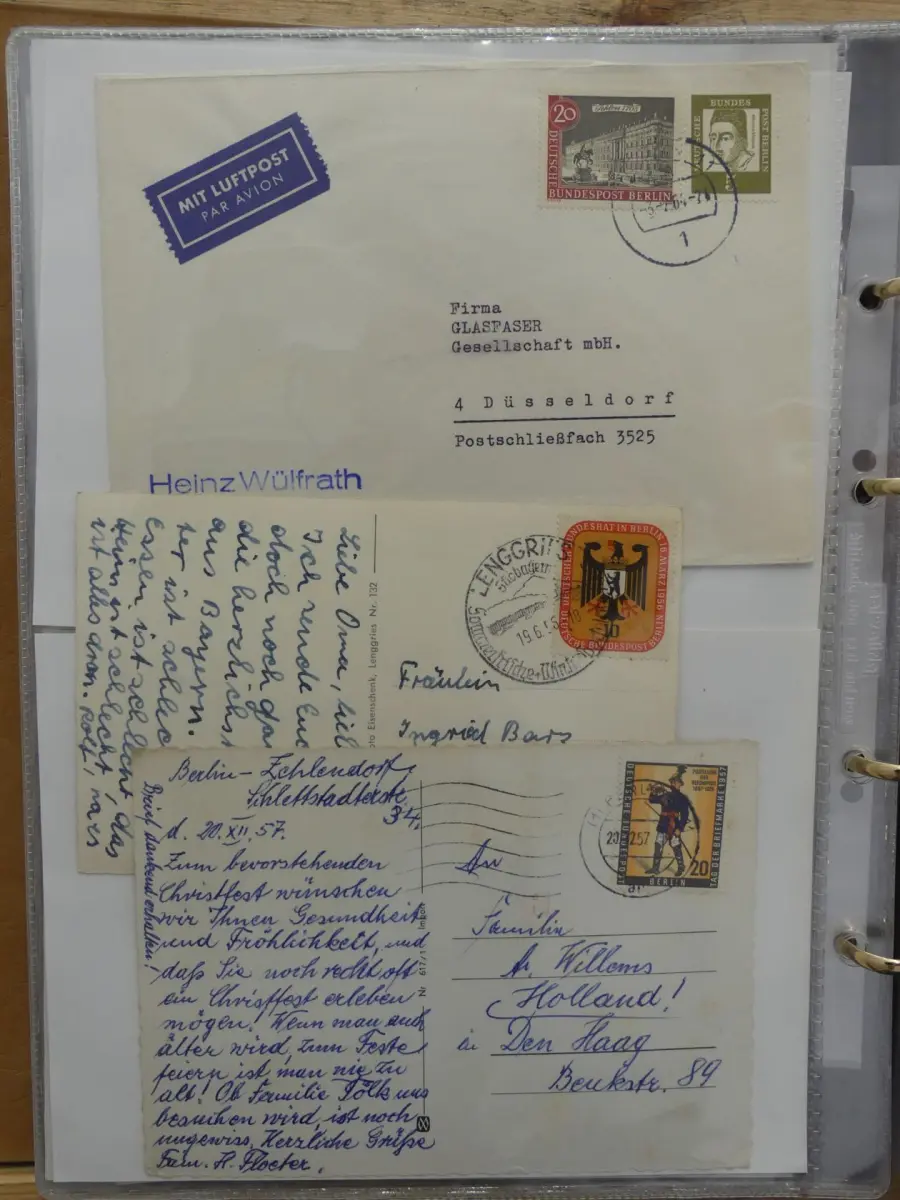 MIT LUFTPOST
PAR AVION
20
DEUTSCHE
BUNDESPOST BERLIN
BUNDES
POST BERLIN
DEUTSCHE
1
Firma
GLASFASER
Gesellschaft mbH.
4 Düsseldorf
Postschließfach 3525
Heinz Wülfrath
Liebe Oma,
Ich sende Euc
doch noch
die herzlichs
aus Bayern.
ter ist schlec
Essen ist schlecht, das
Heim ist schlecht,
ist alles
Eisenschenk, Lenggries Nr. 132
LENGGRI
19.6.56
DEUTSCHER BUNDESRAT IN BERLIN 16. MÄRZ 1956
DEUTSCHE BUNDESPOST BERLIN
10
Fräulein
Ingried Bars
Berlin-Zehlendorf,
Schlettstadterstr.
34.
d. 20.XII.57.
Zum bevorstehenden
Christfest wünschen
wir Ihnen Gesundheit
und Fröhlichkeit, und
daß Sie noch recht oft
ein Christfest erleben
mögen! Wenn man auch
älter wird, zum Feste
feiern ist man nie zu
alt! Ob Familie Tölk uns
besuchen wird, ist noch
ungewiss. Herzliche Grüße
Fam. H. Floeter.
Brief dankend erhalten!
DEUTSCHE BUNDESPOST
BERLIN
20
TAG DER BRIEFMARKE 1957
An
Familie
A. Willems
Holland!
in Den Haag
Beukstr. 89